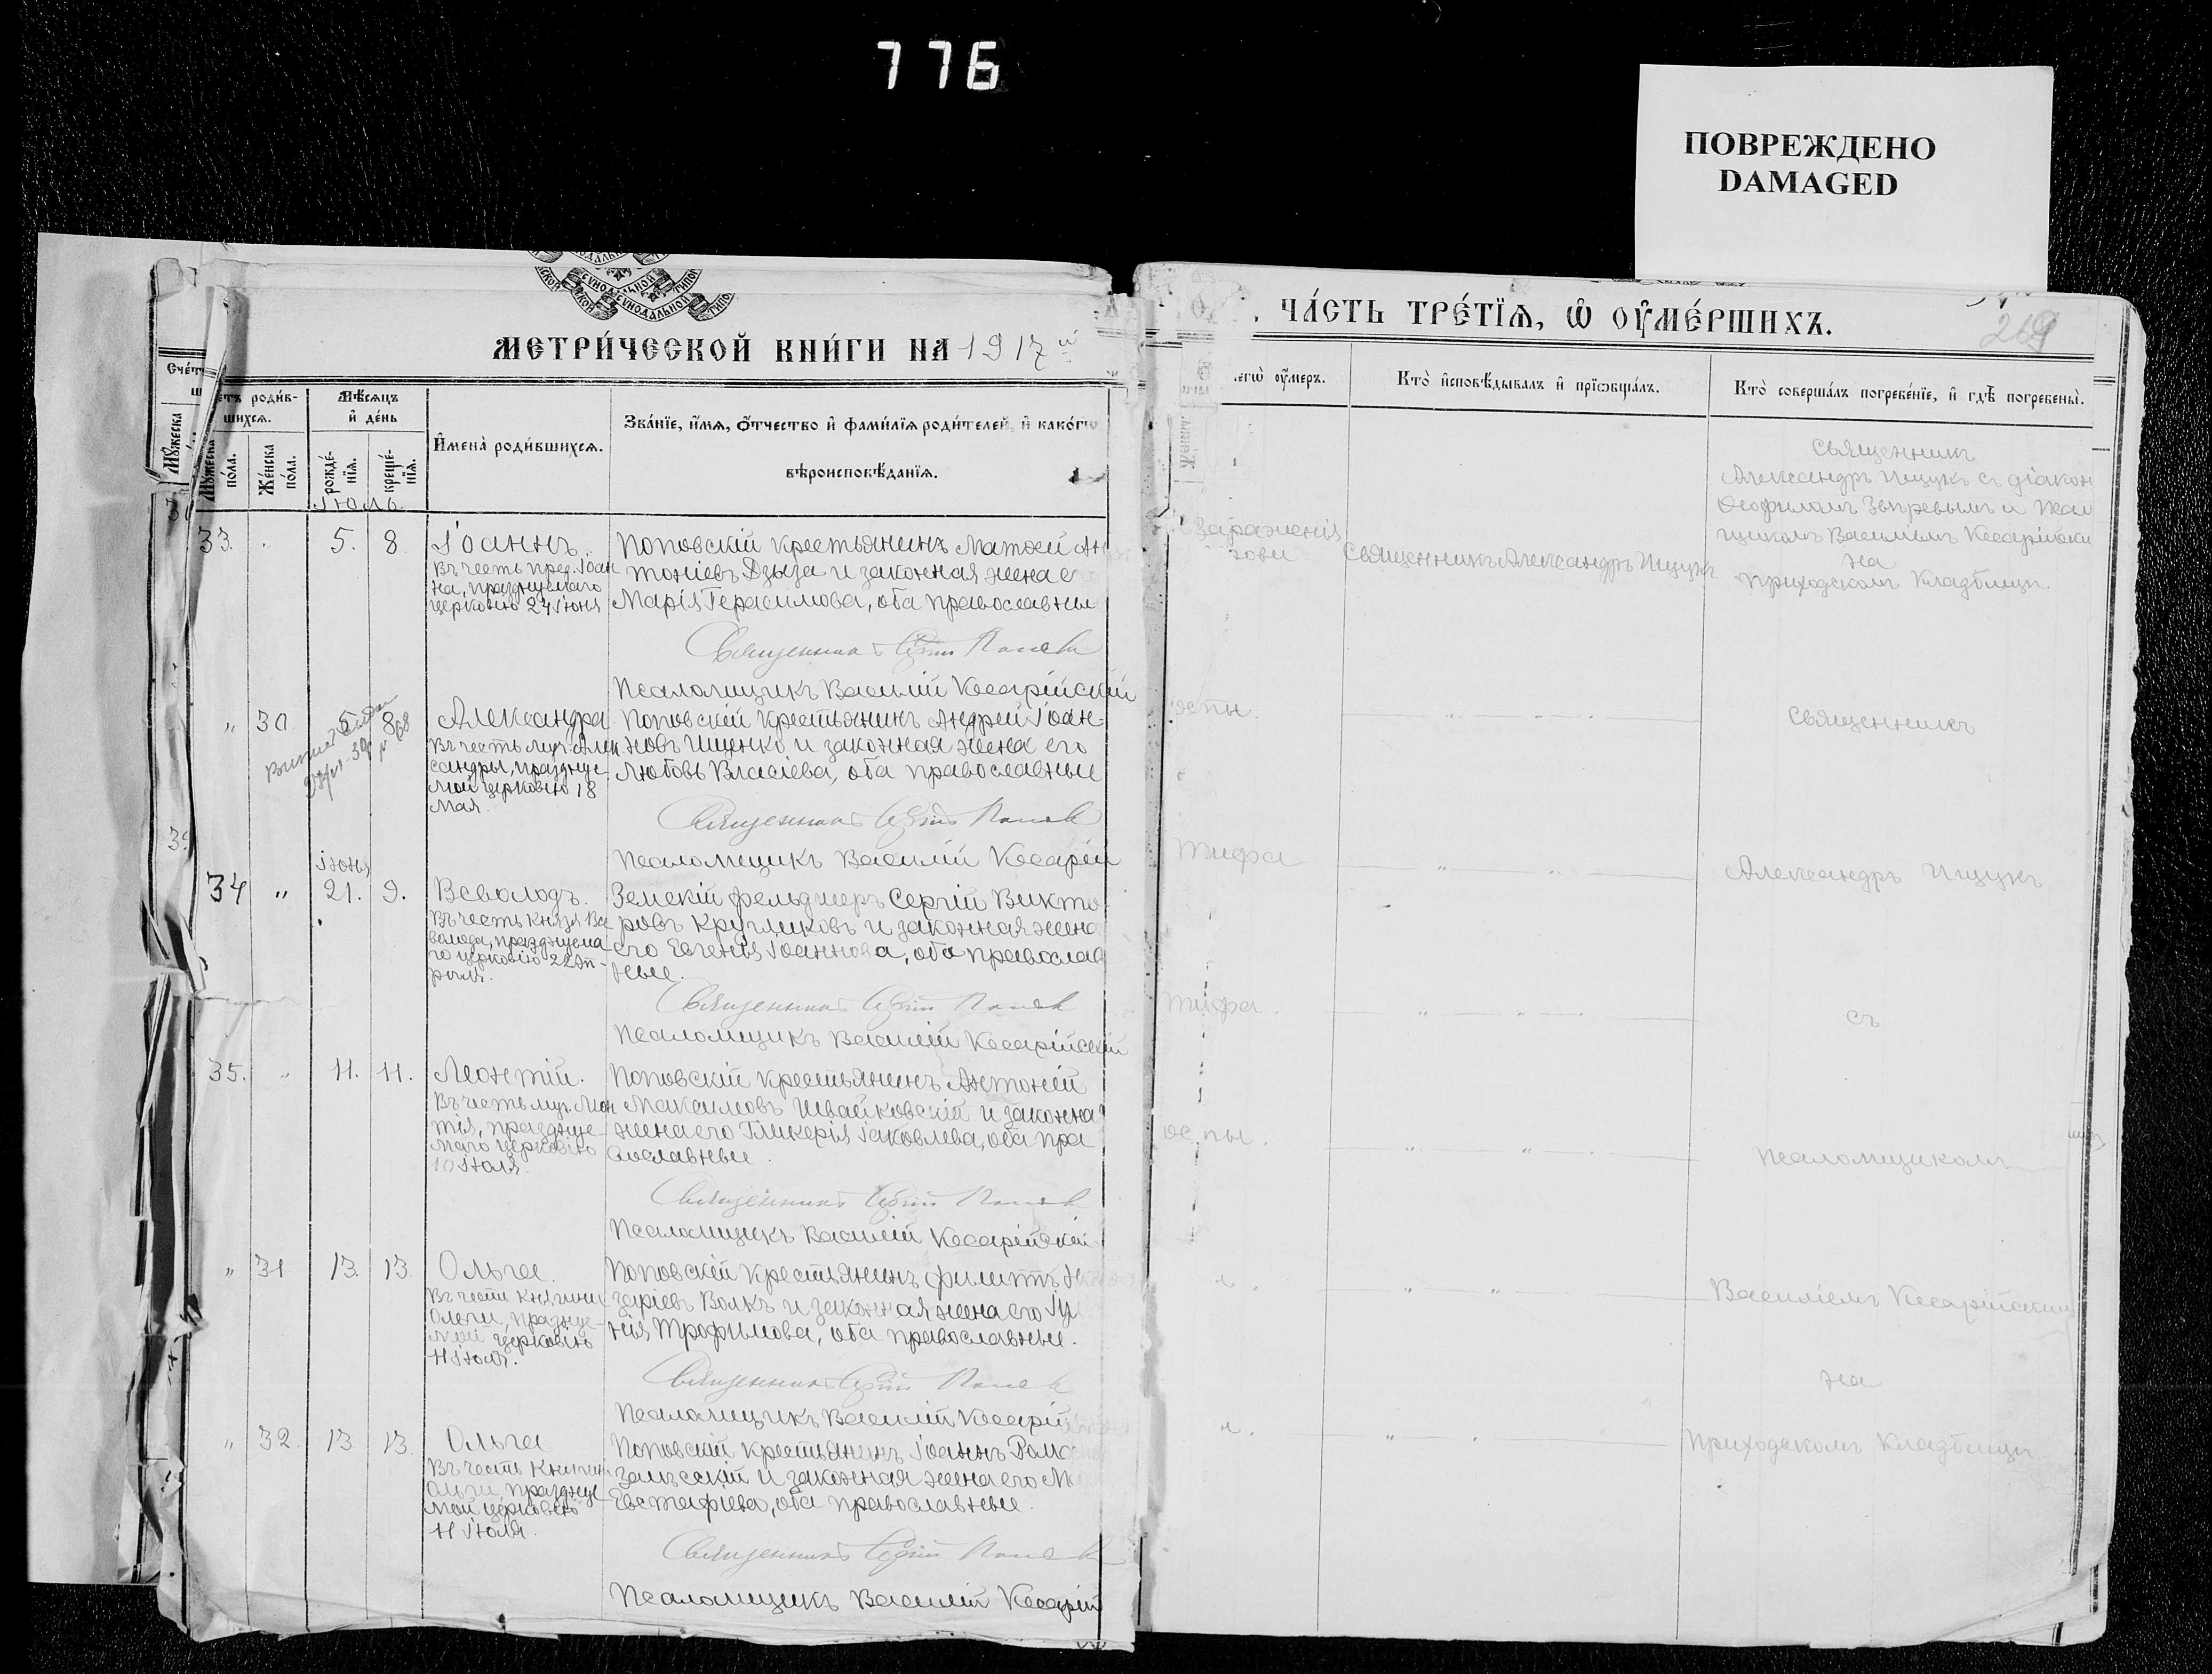 776
ПОВРЕЖДЕНО
DAMAGED
МЕТРИ́ЧЕСКОЙ КНИ́ГИ НА 1917 й
Счетъ роди́вшихся.
Мѣ́сяцъ и҆ де́нь
И҆мена̀ роди́вшихся.
Зва́нїе, и҆́мя, ѻ҆́тчество и҆ фами́лїя роди́телей, и҆ како́гѡ
вѣроисповѣ́данїя.
Мꙋ́жеска по́ла.
Же́нска по́ла.
рожде́нїя.
креще́нїя.
Іюль.
33. 5. 8 Іоаннъ.
Въ честь пред. Іоан
на, празднуемаго
церковію 24 Іюня
Поповскій крестьянинъ Матфей Ан
тоніевъ Дзыза и законная жена е
Марія Герасимова, оба православные
Священникъ
Псаломщикъ Василій Кесарійскій
„ 30. 5 8 Александра
Въ честь муч. Алек
сандры, праздуе
мой церковію 18
Мая.
Поповскій крестьянинъ Андрей Іоан-
новъ Ищенко и законная жена его
Любовь Власіева, оба православные
Священникъ
Псаломщикъ Василій Кесарій
Іюня
34 „ 21. 9. Всеволодъ.
Въ честь Князя Все
волода, празднуема
го церковію 22 Ап-
рѣля.
Земскій фельдшеръ Сергій Викто-
ровъ Кругликовъ и законная жена
его Евгенія Іоаннова, оба православ
ные.
Священникъ
Псаломщикъ Василій Кесарійскій
35. „ 11. 11. Леонтій.
Въ честь муч. Леон
тія, праздуе-
маго церковію
10 Іюля.
Поповскій крестьянинъ Антоній
Максимовъ Швайковскій и законна
жена его Гликерія Іаковлева, оба пра
вославные.
Священникъ
Псаломщикъ Василій Кесарійскій
„ 31 13. 13 Ольга.
Въ честь Княгини
Ольги, праздуе-
мой церковію
11 Іюля.
Поповскій крестьянинъ Филиппъ
заріевъ Волкъ и законная жена его
нія Трофимова, оба православные.
Священникъ
Псаломщикъ Василій Кесарій
„ 32 13 13 Ольга
Въ честь Княгини
Ольги, праздуе-
мой церковію
11 Іюля.
Поповскій крестьянинъ Іоаннъ
Залѣсскій и законная жена его
Евстафіева, оба православные.
Священникъ
Псаломщикъ Василій Кесарій
ЧА́СТЬ ТРЕ́ТЇѦ, Ѡ҆ ОУ҆МЕ́РШИХЪ.
269
чегѡ̀ ᲂу҆́меръ.
Кто̀ и҆сповѣ́дывалъ и҆ прїѡбща́лъ.
Кто̀ соверша́лъ погребе́нїе, и҆ гдѣ̀ погребены̀.
Зараженія
Священникъ Александръ Ищукъ
Священникъ
Александръ Ищукъ съ діакон
Ѳеофиломъ Звѣревымъ и Псал
щикомъ Василіемъ Кесарійски
на
приходскомъ Кладбищѣ.
оспы.
Священникъ
Тифа
Александръ Ищукъ
Тифа.
съ
оспы.
псаломщикомъ
Василіемъ Кесарійским
на
приходскомъ Кладбищѣ